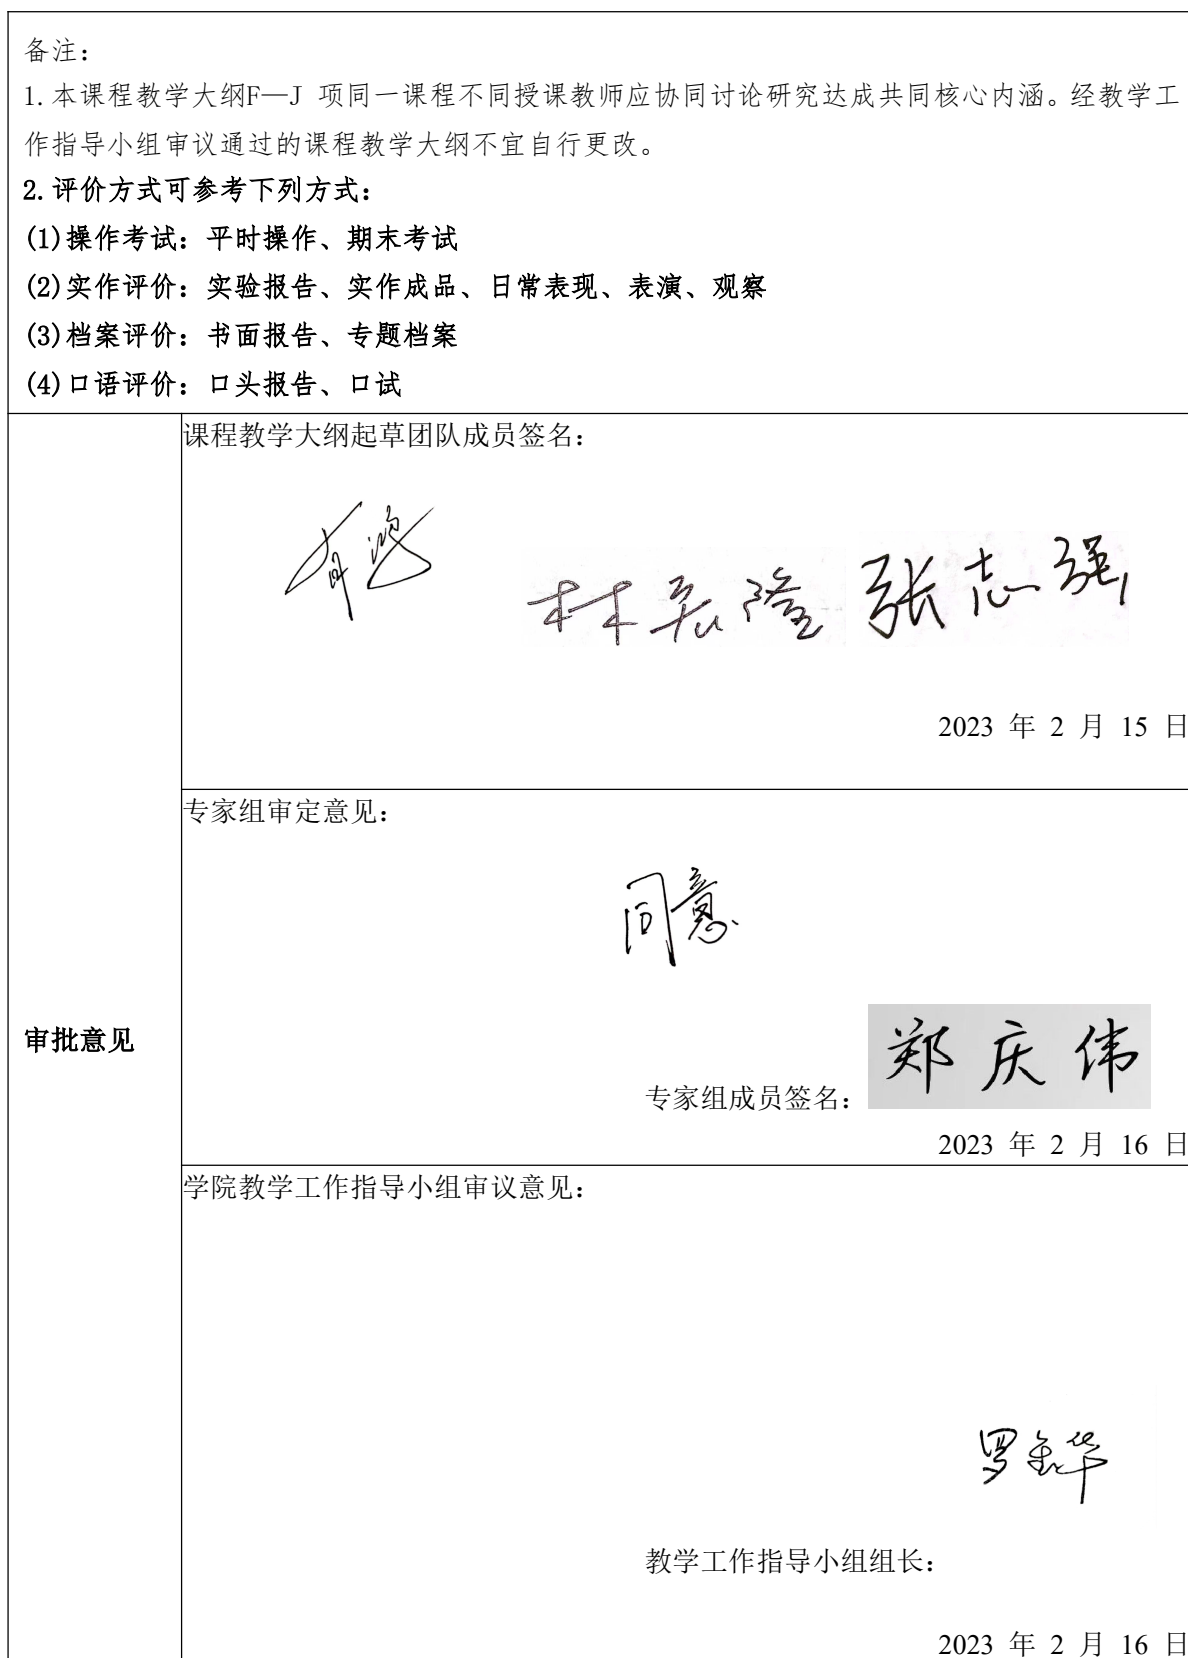 备注：
1.本课程教学大纲F—J 项同一课程不同授课教师应协同讨论研究达成共同核心内涵。经教学工
作指导小组审议通过的课程教学大纲不宜自行更改。
2.评价方式可参考下列方式：
(1)操作考试：平时操作、期末考试
(2)实作评价：实验报告、实作成品、日常表现、表演、观察
(3)档案评价：书面报告、专题档案
(4)口语评价：口头报告、口试
课程教学大纲起草团队成员签名：
林 隆 张志强
2023 年 2 月 15 日
专家组审定意见：
同意
审批意见
郑庆伟
专家组成员签名：
2023 年 2 月 16 日
学院教学工作指导小组审议意见：
罗金华
教学工作指导小组组长：
2023 年 2 月 16 日